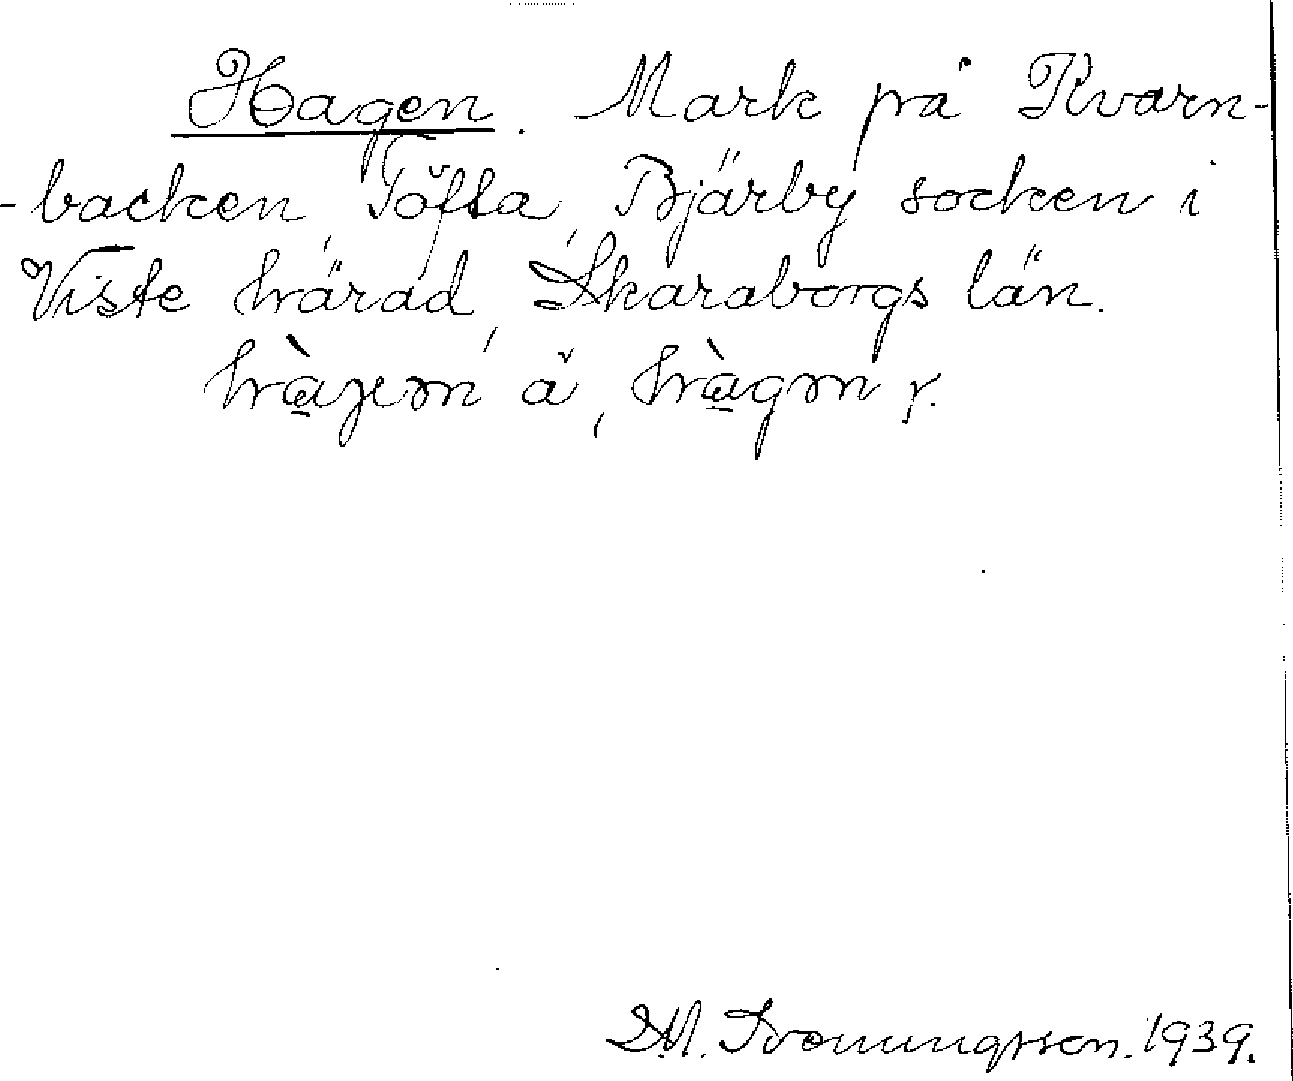 Hagen. Mark på Kvarn-
-backen, Töfta, Bjärby socken i
Viste härad, Skaraborgs län.
ä, y.
Svenungsson. 1939.